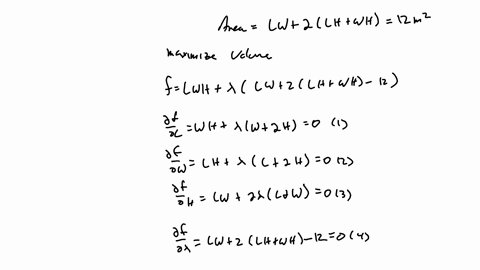 Area = LW+2(LH+WH)=12m²
maximize Volume
f=LWH+λ(LW+2(LH+WH)-12)
∂f/∂L = WH+λ(W+2H)=0 (1)
∂f/∂W = LH+λ(L+2H)=0 (2)
∂f/∂H = LW+2λ(L+W)=0 (3)
∂f/∂λ = LW+2(LH+WH)-12=0 (4)